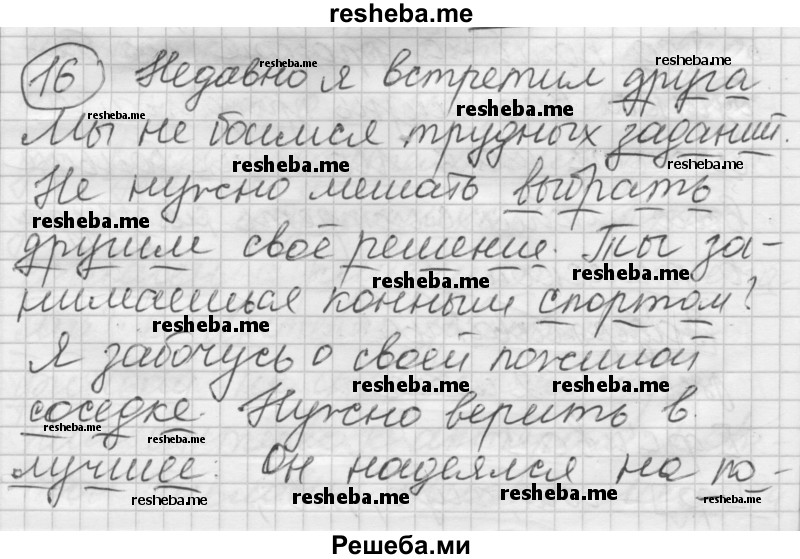 resheba.me
16 Недавно я встретил друга.
resheba.me
resheba.me
resheba.me
Мы не боимся трудных заданий.
resheba.me
resheba.me
Не нужно мешать выбрать
resheba.me
другим своё решение. Ты за-
resheba.me
resheba.me
нимаешься конным спортом?
resheba.me
Я забочусь о своей пожилой
resheba.me
resheba.me
соседке. Нужно верить в
resheba.me
resheba.me
лучшее. Он надеялся на по-
resheba.me
resheba.me
resheba.me
resheba.me
Решеба.ми